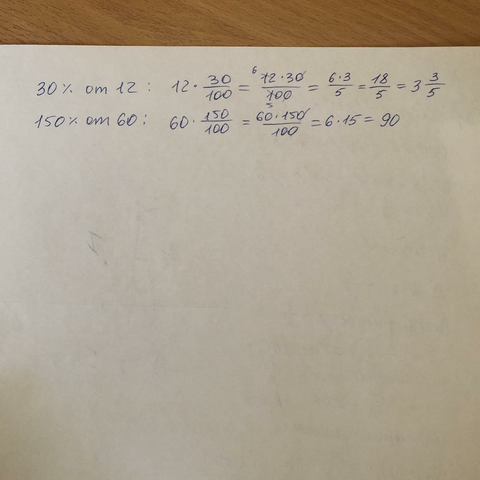 30% от 12 : 12 · 30/100 = 12·30/100 = 6·3/5 = 18/5 = 3 3/5
150% от 60 : 60 · 150/100 = 60·150/100 = 6·15 = 90